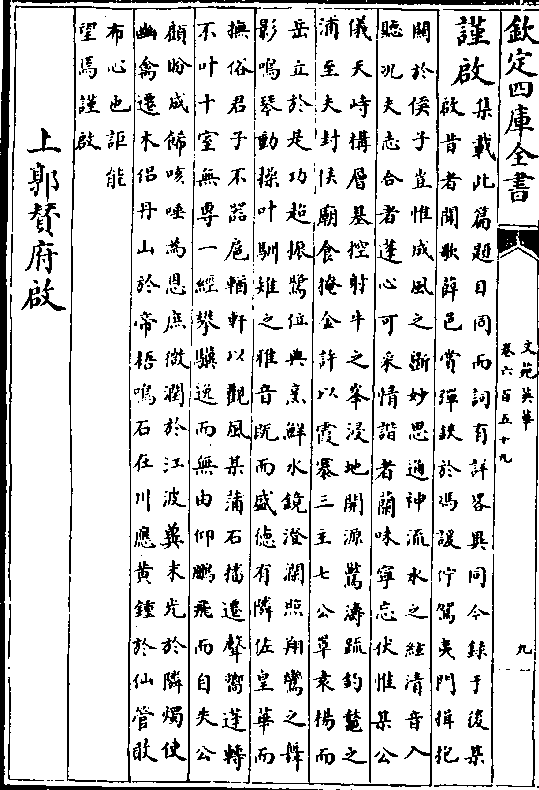 欽定四庫全書
文苑英華
卷六百五十九
九
謹啟
集載此篇題目同而詞有詳畧異同今錄于後某
啟昔者聞歌薛邑賞彈鋏於馮諼佇駕夷門揖抱
關於侯子豈惟成風之斲妙思通神流水之絃清音入
聽況夫志合者蓬心可采情諧者蘭味寧忘伏惟某公
儀天峙構層基控射牛之峯浸地開源驚濤疏釣鼇之
浦至夫封侯廟食掩金許以霞褰三主七公罩袁楊而
岳立於是功超振鷺位典烹鮮水鏡澄瀾照翔鸞之舞
影鳴琴動操叶馴雉之雅音既而盛德有隣佐皇華而
撫俗君子不器扈輶軒以觀風某蒲石播遷聲嚮蓬轉
不叶十室無專一經攀驥逸而無由仰鵬飛而自失公
顧盼成飾咳唾為恩庶微潤於江波冀末光於隣燭使
幽禽遷木侶丹山於帝梧鳴石在川應黃鍾於仙管敢
布心也詎能
望焉謹啟
上郭賛府啟